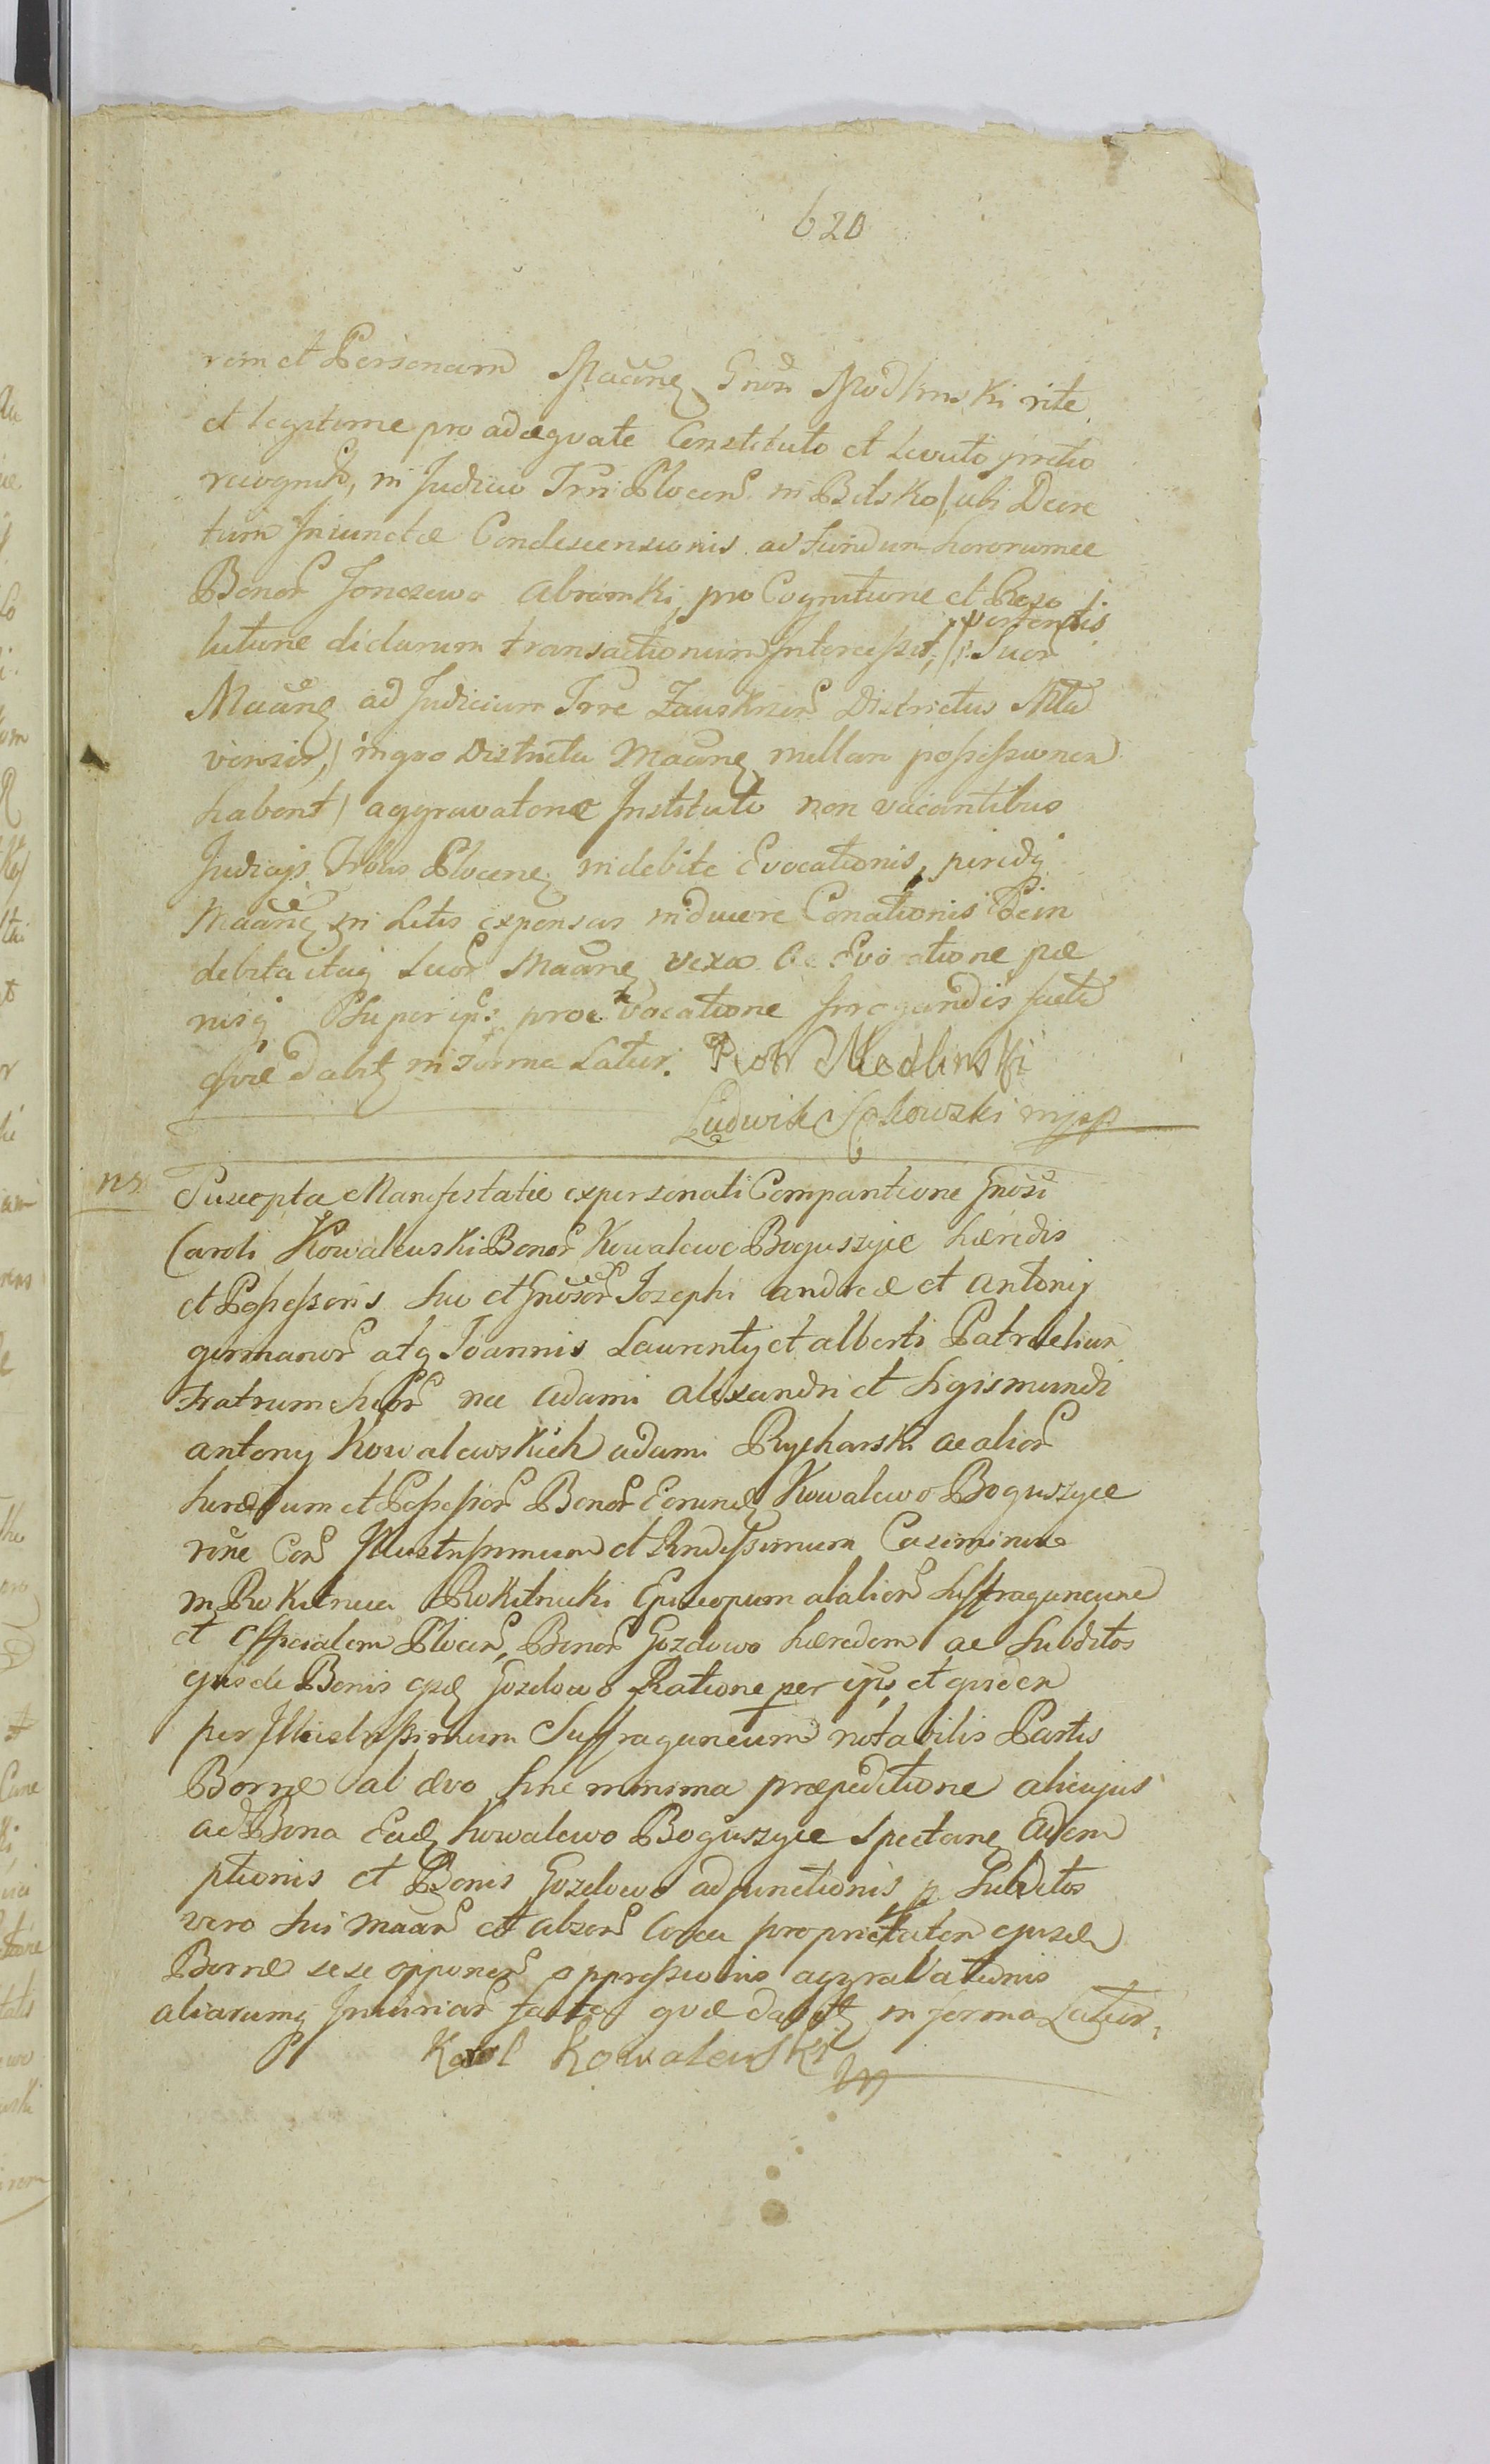 620
rem et Personam Maãne Gnõr Modlinski rite
et legitime pro adæquate Constituto et Levuto pretio
recognito, in Judicio Trri Plocen in Bilsko / ubi Decre
tum Iniunctæ Condescensionis ad Fundum horumce
Bonor Jonczewo Abramki, pro Cognitione et Reso
vertentis
lutione dictarum transactionum Intercessit, /: Suor
Maãne ad Judicium Trre Zauskrzen Districtus Mla
viensis, / in quo Districtu Maãne nullam possessionem
habent / aggravatoriæ Instituto non vacantibus
Judicijs Plocen indebite Evocationis, perindq
Maãne in Litis expensas inducere Conationis
debita itaq Suor Maãne ac Evocatione pæ
nisq super ips pro Evocatione Irrogandis facto
qvæ dabitʒ in forma Latur. Piotr Modlinski
Ludwik mpp
ns. Suscepta Manifestatio ex personali Comparitione Gnosi
Caroli Kowalewski Bonor Kowalewo Boguszyce hæredis
et Possessoris suo et Gnosor Josephi Andreæ et Antonij
germanor atq Joannis Laurentij et Alberti Patruelium
Fratrum suor nec Adami Alexandri et Sigismundi
Antonij Kowalewskich Adami Rycharski ac alior
hæredum et Possessor Bonor Eorund Kowalewo Boguszyce
noie Con Illustrissimum et Rndissimum Casimirum
in Rokitnica Rokitnicki Episcopum Suffraganeum
et Officialem Plocen, Bonor Gozdowo hæredem ac Subditos
ejusde Bonis Gozdowo Ratione per ips et quidem
per Illustrissimum Suffraganeum notabilis Partis
Borræ ab ævo sine minima præpeditione alicujus
ad Bona Ead Kowalewo Boguszyce Spectane Adem
ptionis et Bonis Gozdowo adjunctionis p Subditos
vero sui maar et circa proprietatem ejusd
Borræ sese opponen oppressionis aggravationis
aliarumq Iniuriar facto qvæ dabitʒ in forma Latur.
Karol Kowalewski